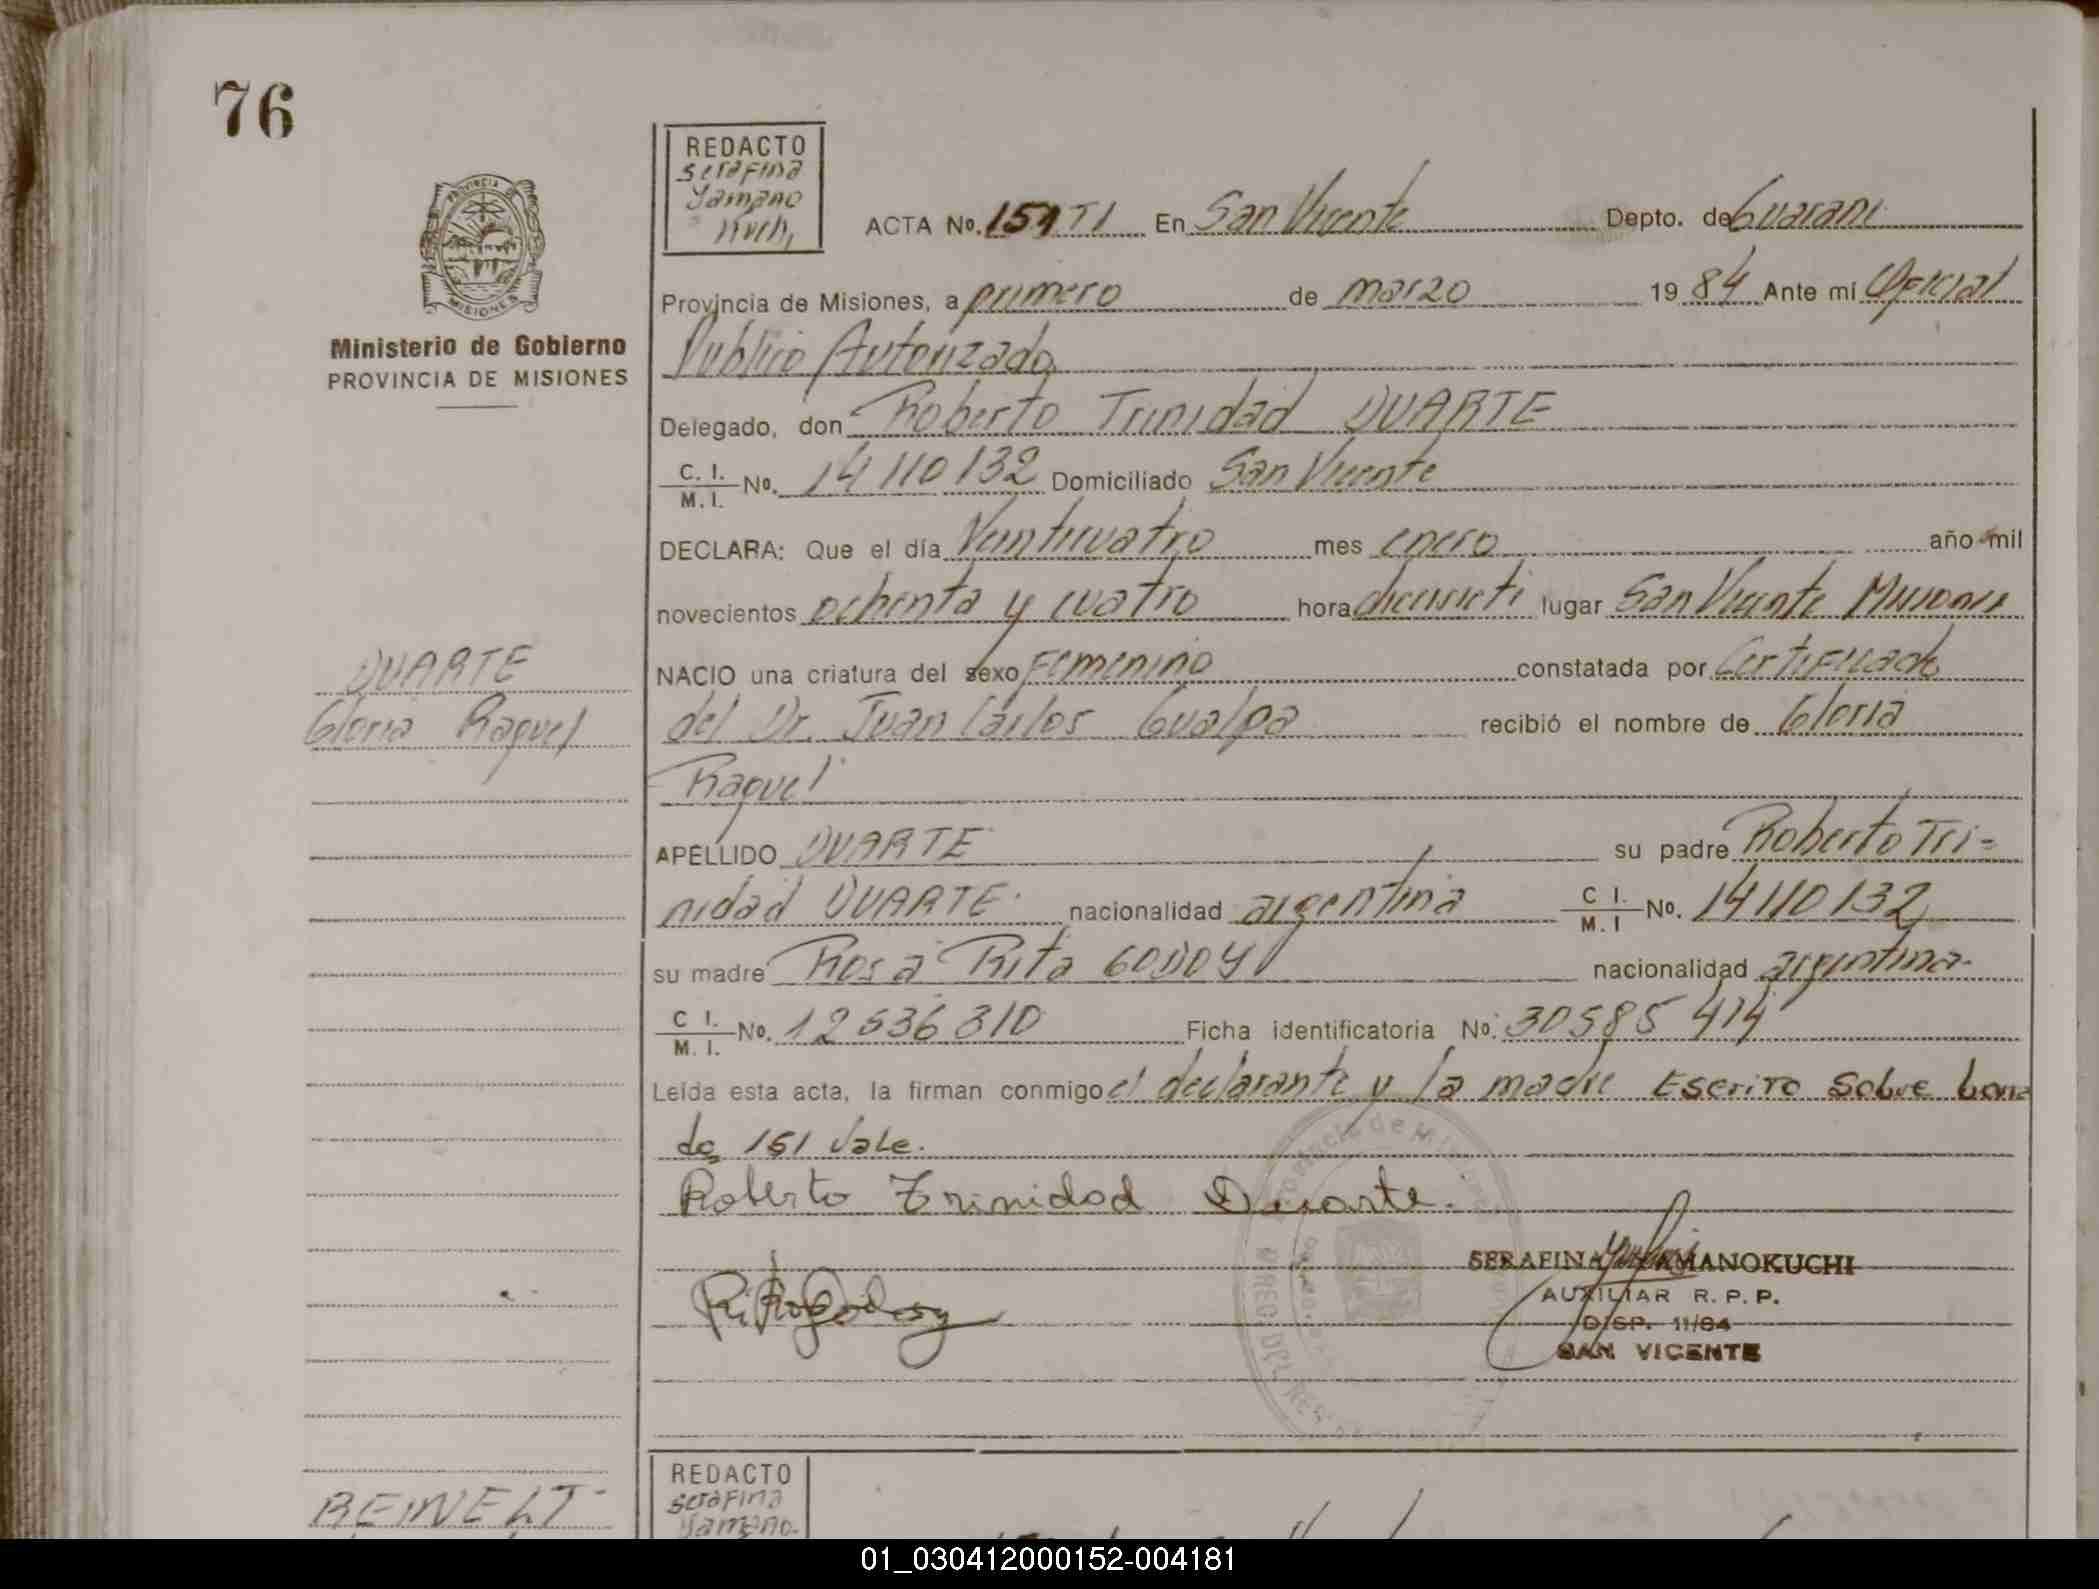 76
REDACTO
Serafina
Yamano
Kuchi
ACTA No. 151 TI En San Vicente Depto. de Guarani
Provincia de Misiones, a primero de marzo 19 84 Ante mí Oficial
Publico Autorizado
PROVINCIA DE
MISIONES
Ministerio de Gobierno
PROVINCIA DE MISIONES
Delegado, don Roberto Trinidad DUARTE
C. I.
M. I. No. 14110132 Domiciliado San Vicente
DECLARA: Que el día Veinticuatro mes enero año mil
novecientos ochenta y cuatro hora diecisiete lugar San Vicente Misiones
NACIO una criatura del sexo Femenino constatada por Certificado
del Dr. Juan Carlos Gualpa recibió el nombre de Gloria
Raquel
DUARTE
Gloria Raquel
APELLIDO DUARTE su padre Roberto Tri=
nidad DUARTE. nacionalidad argentina C I.
M. I No. 14110132
su madre Rosa Rita GODOY nacionalidad argentina-
C I.
M. I. No. 12536310 Ficha identificatoria No. 30585414
Leída esta acta, la firman conmigo el declarante y la madre Escrito sobre borra
do 151 Vale.
Roberto Trinidad Duarte.
Godoy
Provincia de Misiones
SERAFINA YAMANOKUCHI
AUXILIAR R. P. P.
DISP. 11/84
SAN VICENTE
REINELT-
REDACTO
Serafina
Yamano-
01_030412000152-004181